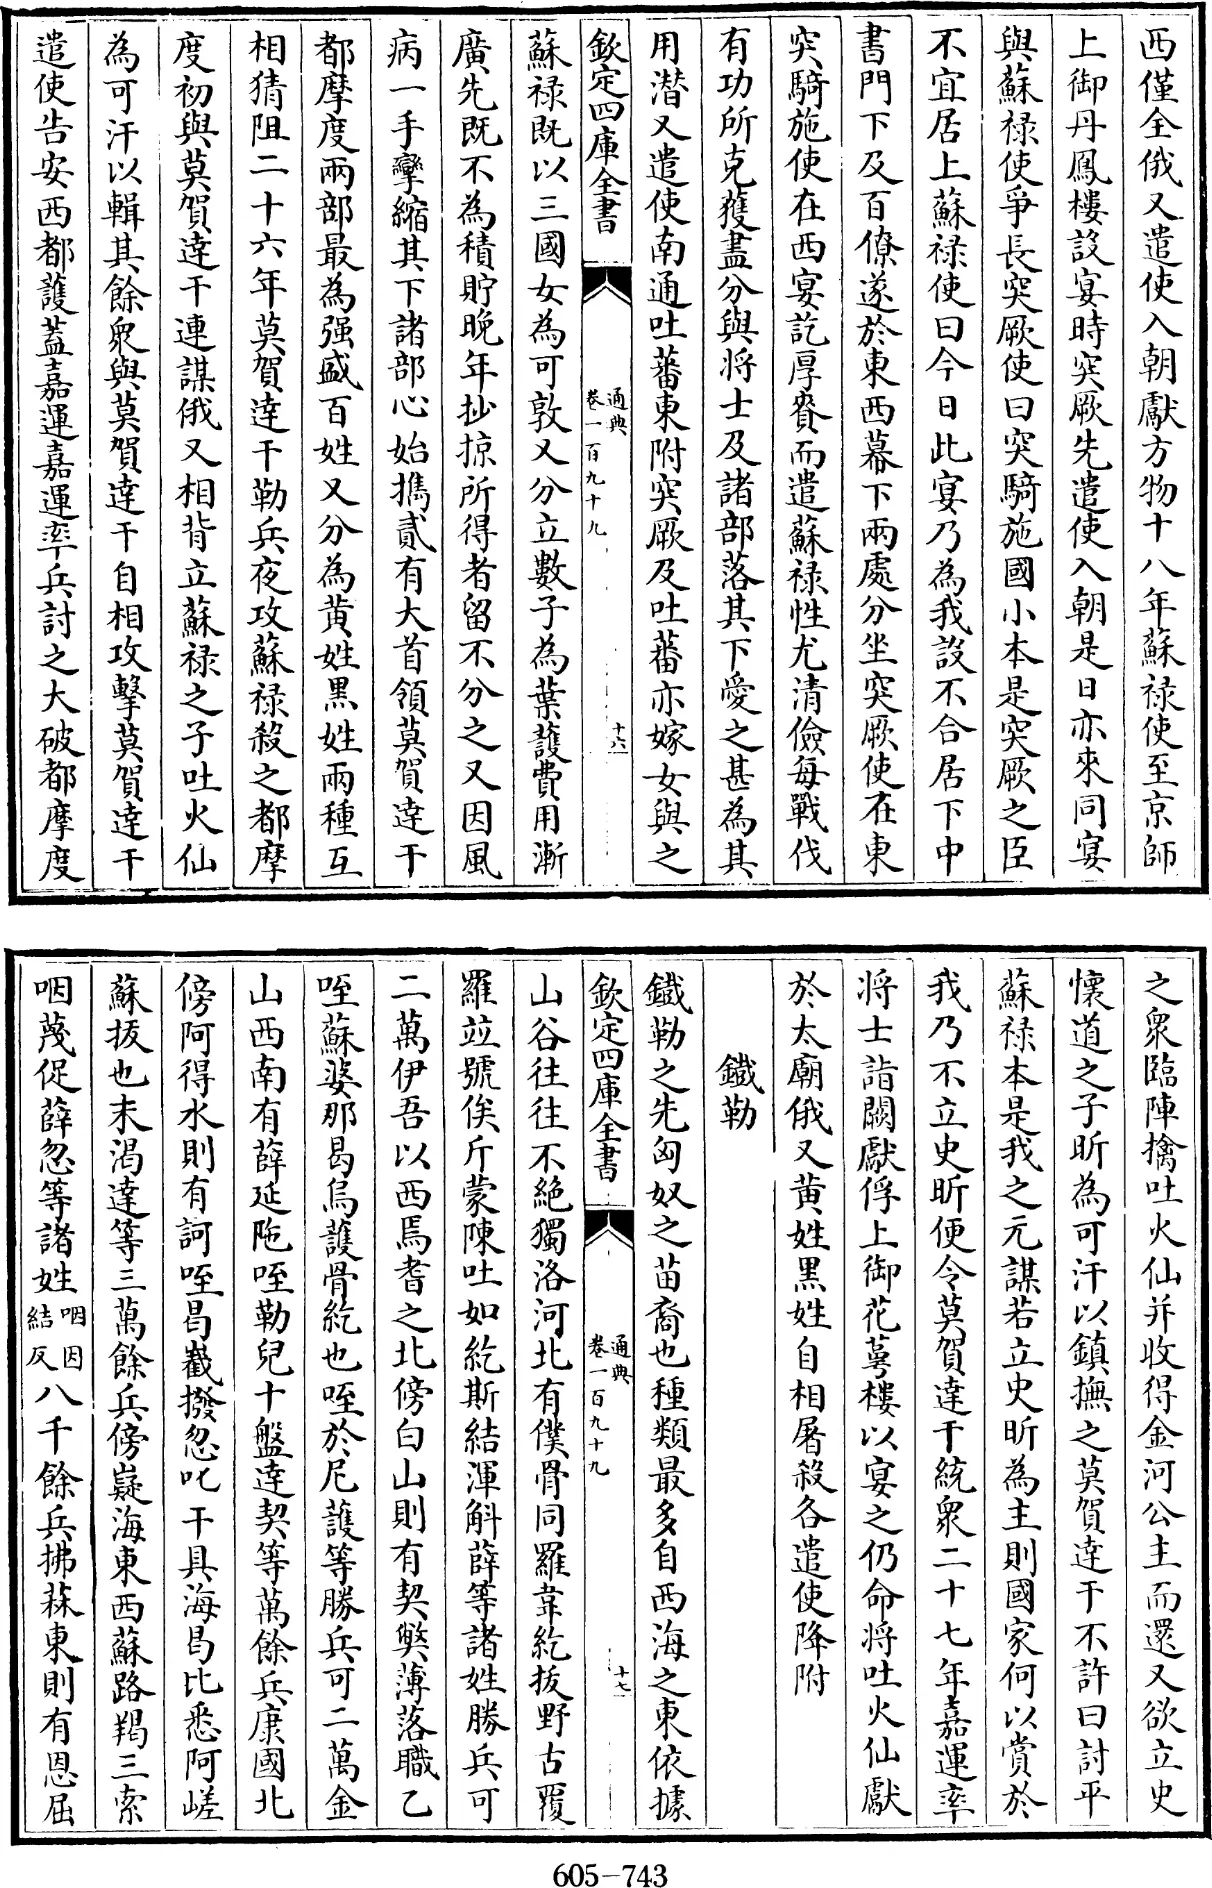 西僅全俄又遣使入朝獻方物十八年蘇禄使至京師
上御丹鳳樓設宴時突厥先遣使入朝是日亦來同宴
與蘇禄使爭長突厥使曰突騎施國小本是突厥之臣
不宜居上蘇禄使曰今日此宴乃為我設不合居下中
書門下及百僚遂於東西幕下兩處分坐突厥使在東
突騎施使在西宴訖厚賚而遣蘇禄性尤清儉每戰伐
有功所克獲盡分與將士及諸部落其下愛之甚為其
用潜又遣使南通吐蕃東附突厥及吐蕃亦嫁女與之
欽定四庫全書 通典卷一百九十九 十六
蘇禄既以三國女為可敦又分立數子為葉護費用漸
廣先既不為積貯晚年抄掠所得者留不分之又因風
病一手攣縮其下諸部心始攜貳有大首領莫賀達干
都摩度兩部最為强盛百姓又分為黄姓黑姓兩種互
相猜阻二十六年莫賀達干勒兵夜攻蘇禄殺之都摩
度初與莫賀達干連謀俄又相背立蘇禄之子吐火仙
為可汗以輯其餘衆與莫賀達干自相攻擊莫賀達干
遣使告安西都護蓋嘉運嘉運率兵討之大破都摩度
之衆臨陣擒吐火仙并收得金河公主而還又欲立史
懷道之子昕為可汗以鎮撫之莫賀達干不許曰討平
蘇禄本是我之元謀若立史昕為主則國家何以賞於
我乃不立史昕便令莫賀達干統衆二十七年嘉運率
將士詣闕獻俘上御花萼樓以宴之仍命將吐火仙獻
於太廟俄又黄姓黑姓自相屠殺各遣使降附
鐵勒
鐵勒之先匈奴之苗裔也種類最多自西海之東依據
欽定四庫全書 通典卷一百九十九 十七
山谷往往不絶獨洛河北有僕骨同羅韋紇拔野古覆
羅竝號俟斤蒙陳吐如紇斯結渾斛薛等諸姓勝兵可
二萬伊吾以西焉耆之北傍白山則有契獘薄落職乙
咥蘇婆那曷烏護骨紇也咥於尼護等勝兵可二萬金
山西南有薛延陁咥勒兒十盤達契等萬餘兵康國北
傍阿得水則有訶咥曷嶻撥忽叱干具海曷比悉阿嵯
蘇拔也末渴達等三萬餘兵傍嶷海東西蘇路羯三索
咽蔑促薛忽等諸姓咽因結反八千餘兵拂菻東則有恩屈
605-743